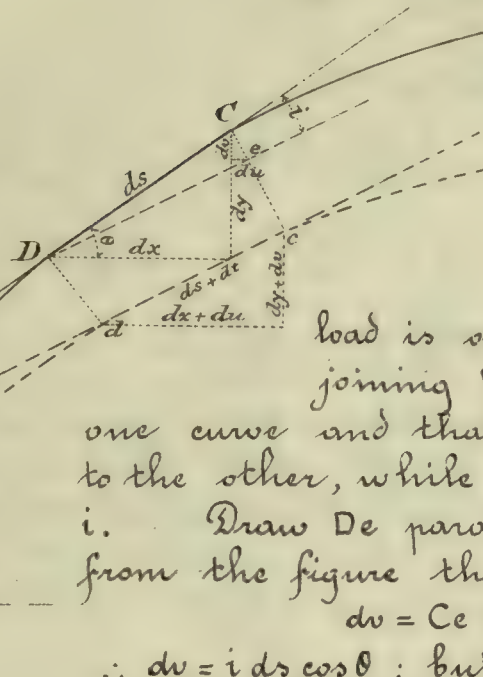 C
i
dv
e
du
ds
dy
D
θ
dx
c
ds + dt
dy + dv
d
dx + du
load is
joining
one curve and tha
to the other, while
i. Draw De para
from the figure th
dv = Ce
∴ dv = i ds cos θ ; but